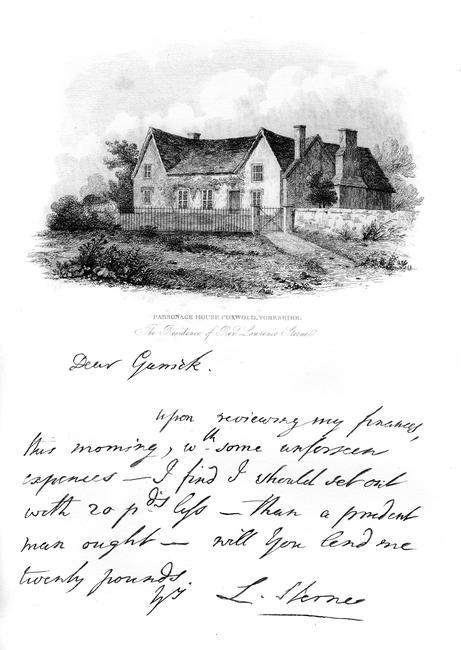 PARSONAGE HOUSE COXWOLD, YORKSHIRE.
The Residence of Revd. Lawrence Sterne
Dear Garrick.
upon reviewing my finances,
this morning, wth some unforseen
expences — I find I should set out
with 20 pds less — than a prudent
man ought — will You lend me
twenty pounds.
Yrs L. Sterne